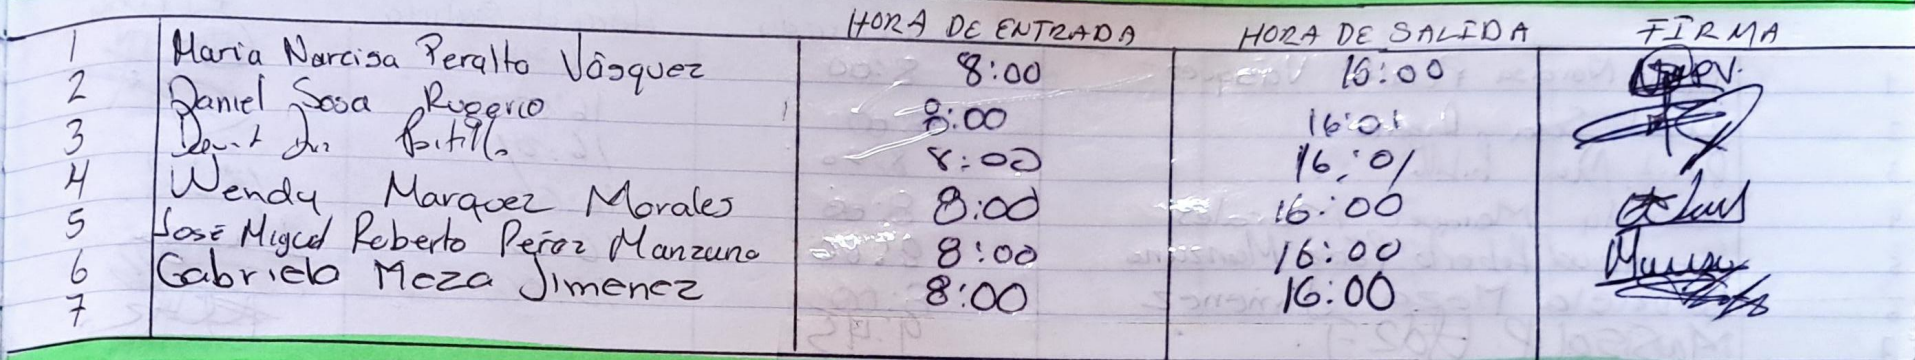 HORA DE ENTRADA HORA DE SALIDA FIRMA
1 Maria Narcisa Peralta Vásquez 8:00 16:00
2 Daniel Sosa Rugerio 8:00 16:01
3 8:00 16:01
4 Wendy Marquez Morales 8:00 16:00
5 José Miguel Roberto Perez Manzano 8:00 16:00
6 Gabriela Meza Jimenez 8:00 16:00
7